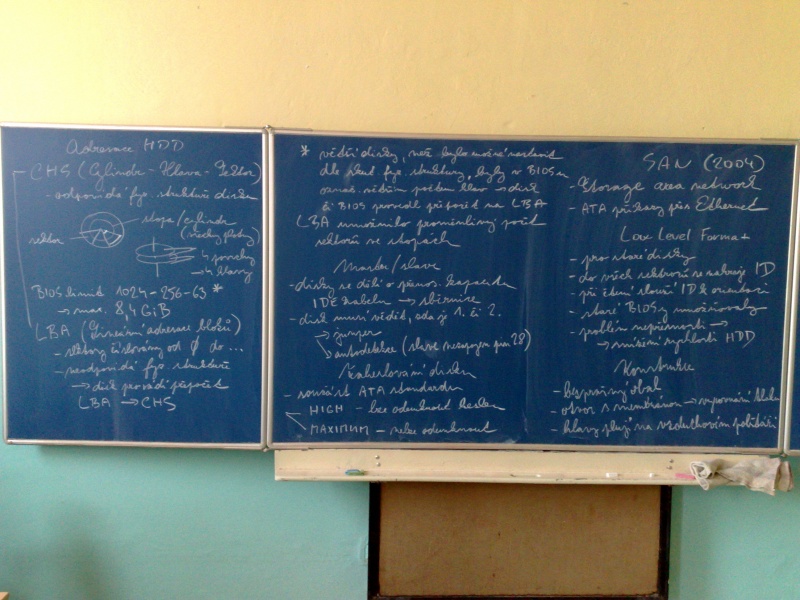 Adresace HDD
CHS (Cylindr - Hlava - Sektor)
- odpovídá fyz. struktuře disku
stopa/cylindr
(všechny plotny)
sektor
4 povrchy
→ 4 hlavy
BIOS limit 1024-256-63 *
→ max. 8,4 GiB
LBA (Lineární adresace bloků)
- sektory číslovány od 0 do ...
- neodpovídá fyz. struktuře
→ disk provádí přepočet
LBA → CHS
* větší disky, než bylo možné nastavit
dle skut. fyz. struktury, byly v BIOSu
označ. větším počtem hlav → disk
či BIOS provedl přepočet na LBA
LBA umožnilo proměnlivý počet
sektorů ve stopách
Master/slave
- disky se dělí o přenos. kapacitu
IDE kabelu → sběrnice
- disk musí vědět, zda je 1. či 2.
→ jumper
→ autodetekce (slave nezapojen pin 28)
Zaheslování disku
- součást ATA standardu
HIGH - lze odemknout heslem
MAXIMUM - nelze odemknout
SAN (2004)
- Storage area network
- ATA příkazy přes Ethernet
Low Level Format
- pro staré disky
- do všech sektorů se nahraje ID
- při čtení slouží ID k orientaci
- staré BIOSy umožňovaly
- problém nepřesnosti →
→ snížení rychlosti HDD
Konstrukce
- bezprašný obal
- otvor s membránou → vyrovnání tlaku
- hlavy plují na vzduchovém polštáři